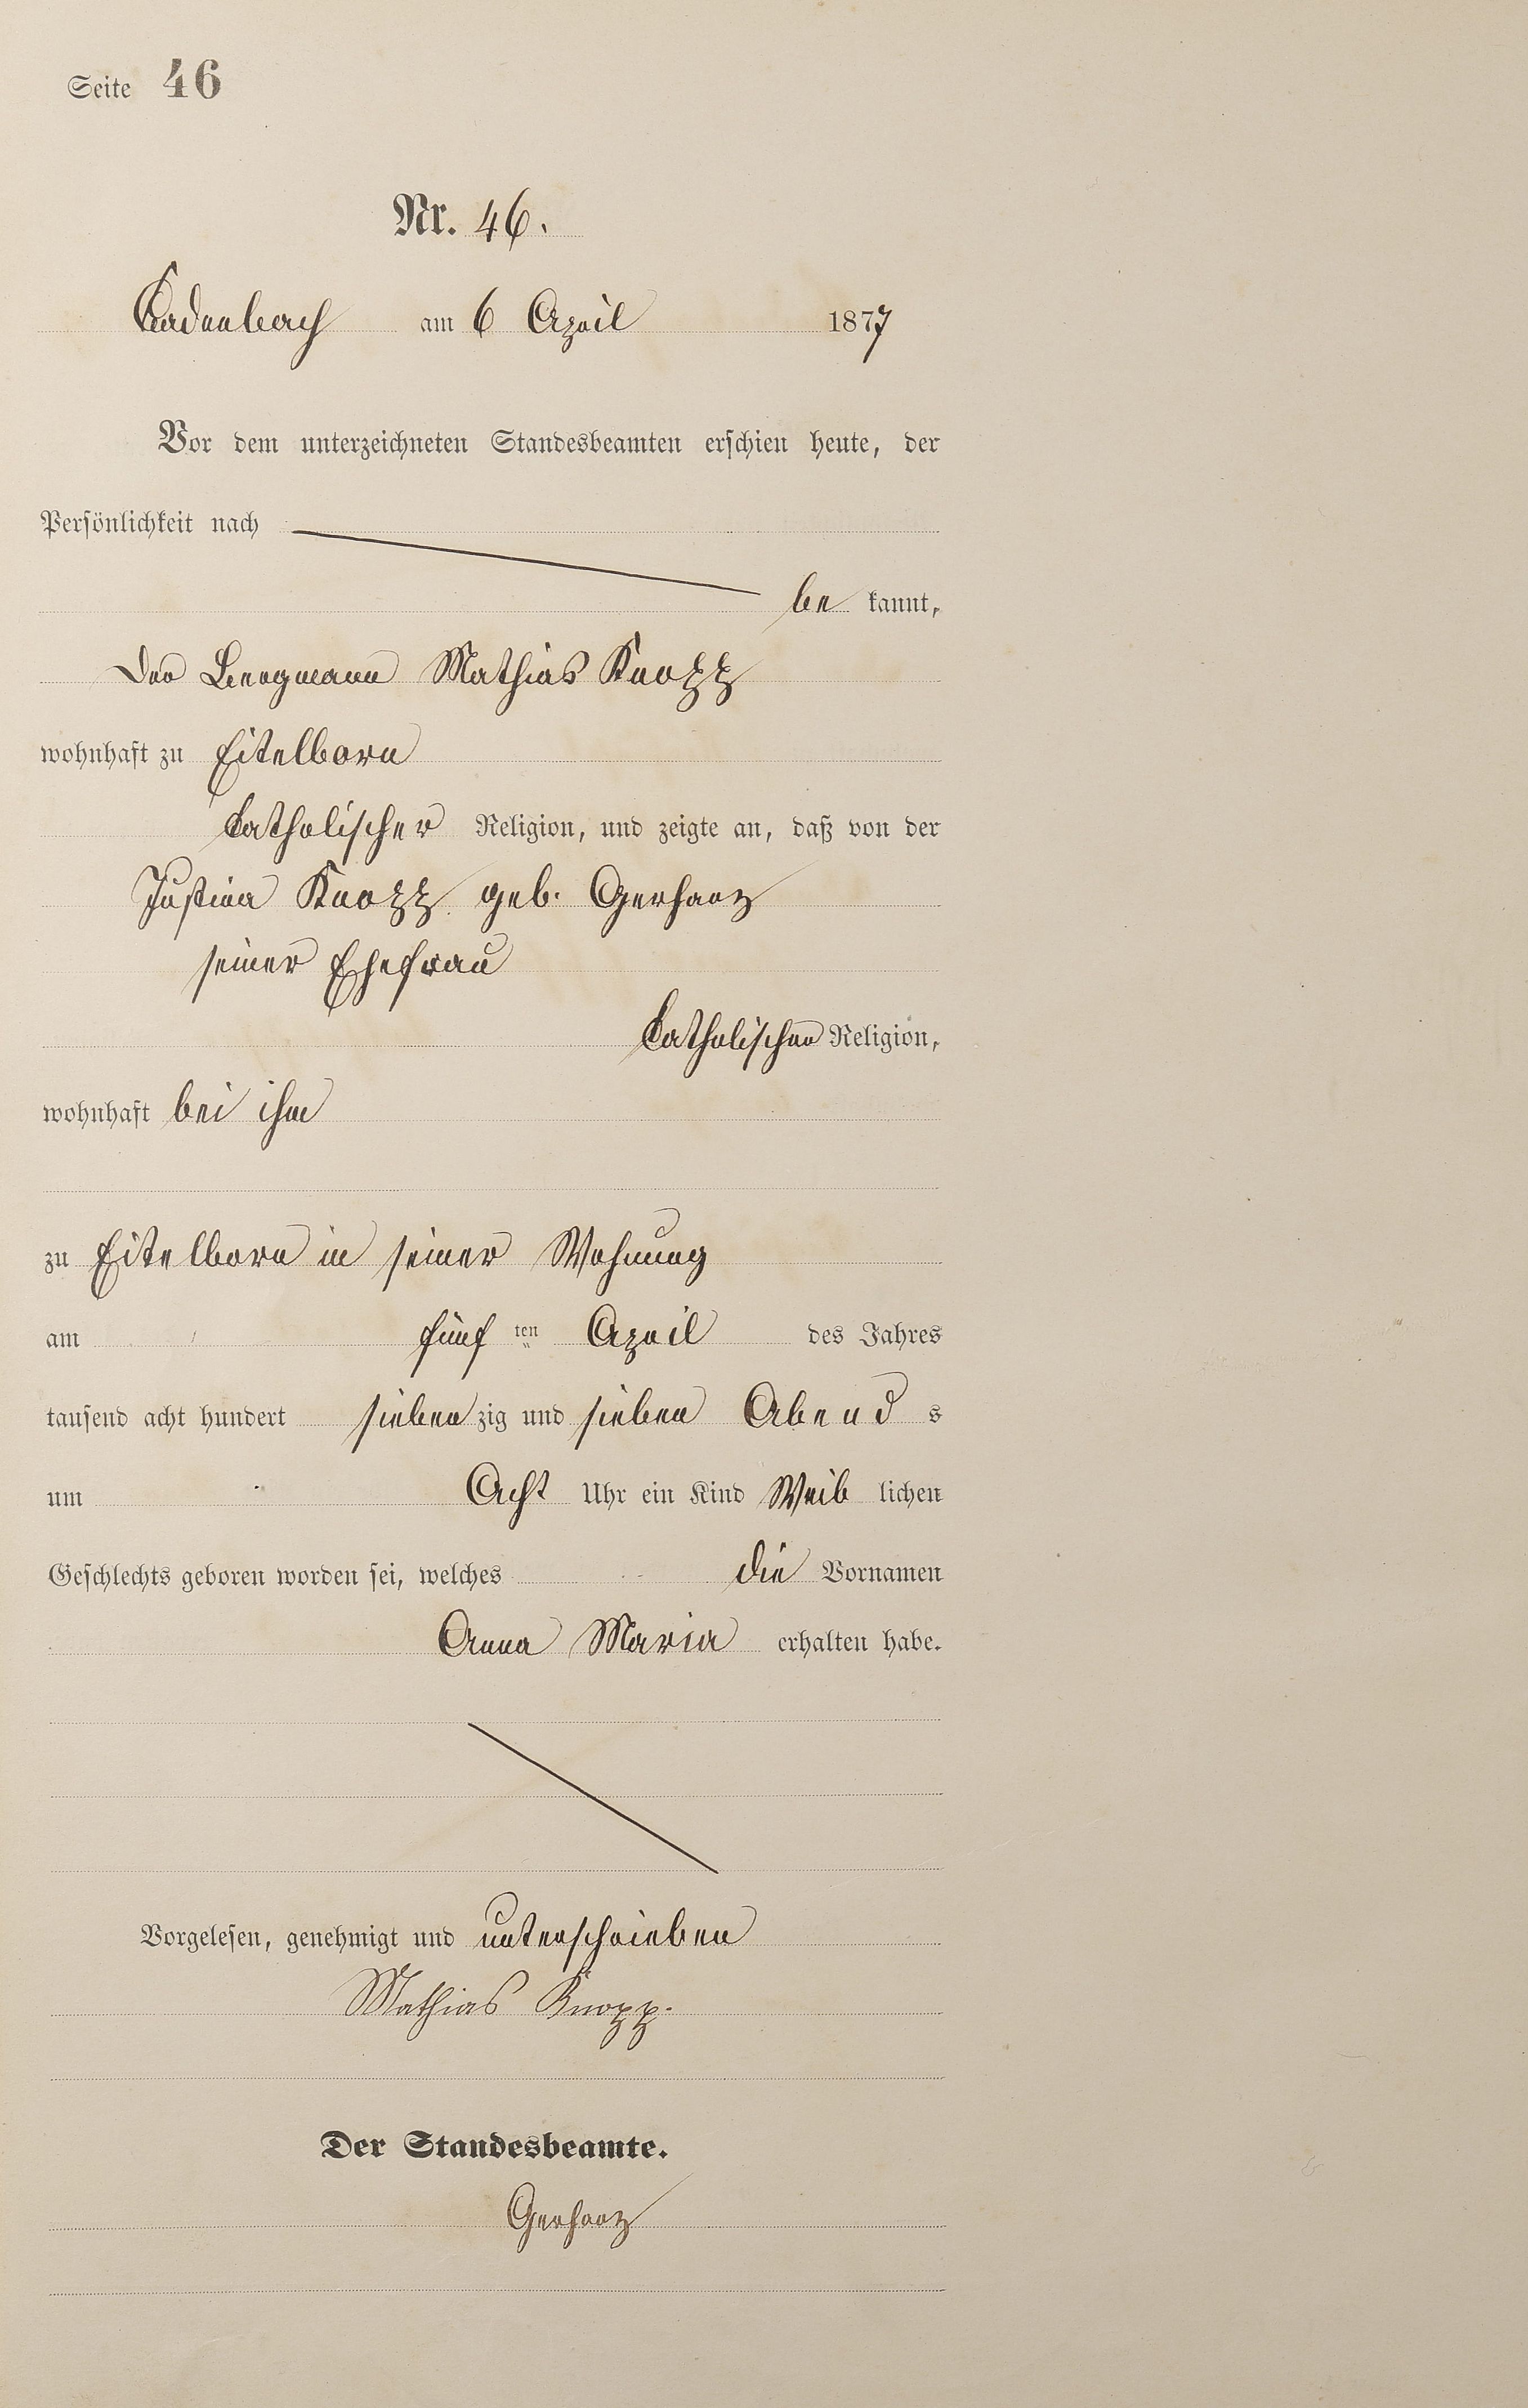 Seite 46
Nr. 46.
Cadenbach am 6 April 1877
Vor dem unterzeichneten Standesbeamten erschien heute, der
Persönlichkeit nach
be kannt,
der Bergmann Mathias Knopp
wohnhaft zu Eitelborn
katholischer Religion, und zeigte an, daß von der
Justina Knopp geb. Gerharz
seiner Ehefrau
katholischer Religion,
wohnhaft bei ihm
zu Eitelborn in seiner Wohnung
am fünf ten April des Jahres
tausend acht hundert sieben zig und sieben Abend s
um Acht Uhr ein Kind Weib lichen
Geschlechts geboren worden sei, welches die Vornamen
Anna Maria erhalten habe.
Vorgelesen, genehmigt und unterschrieben
Mathias Knopp.
Der Standesbeamte.
Gerharz